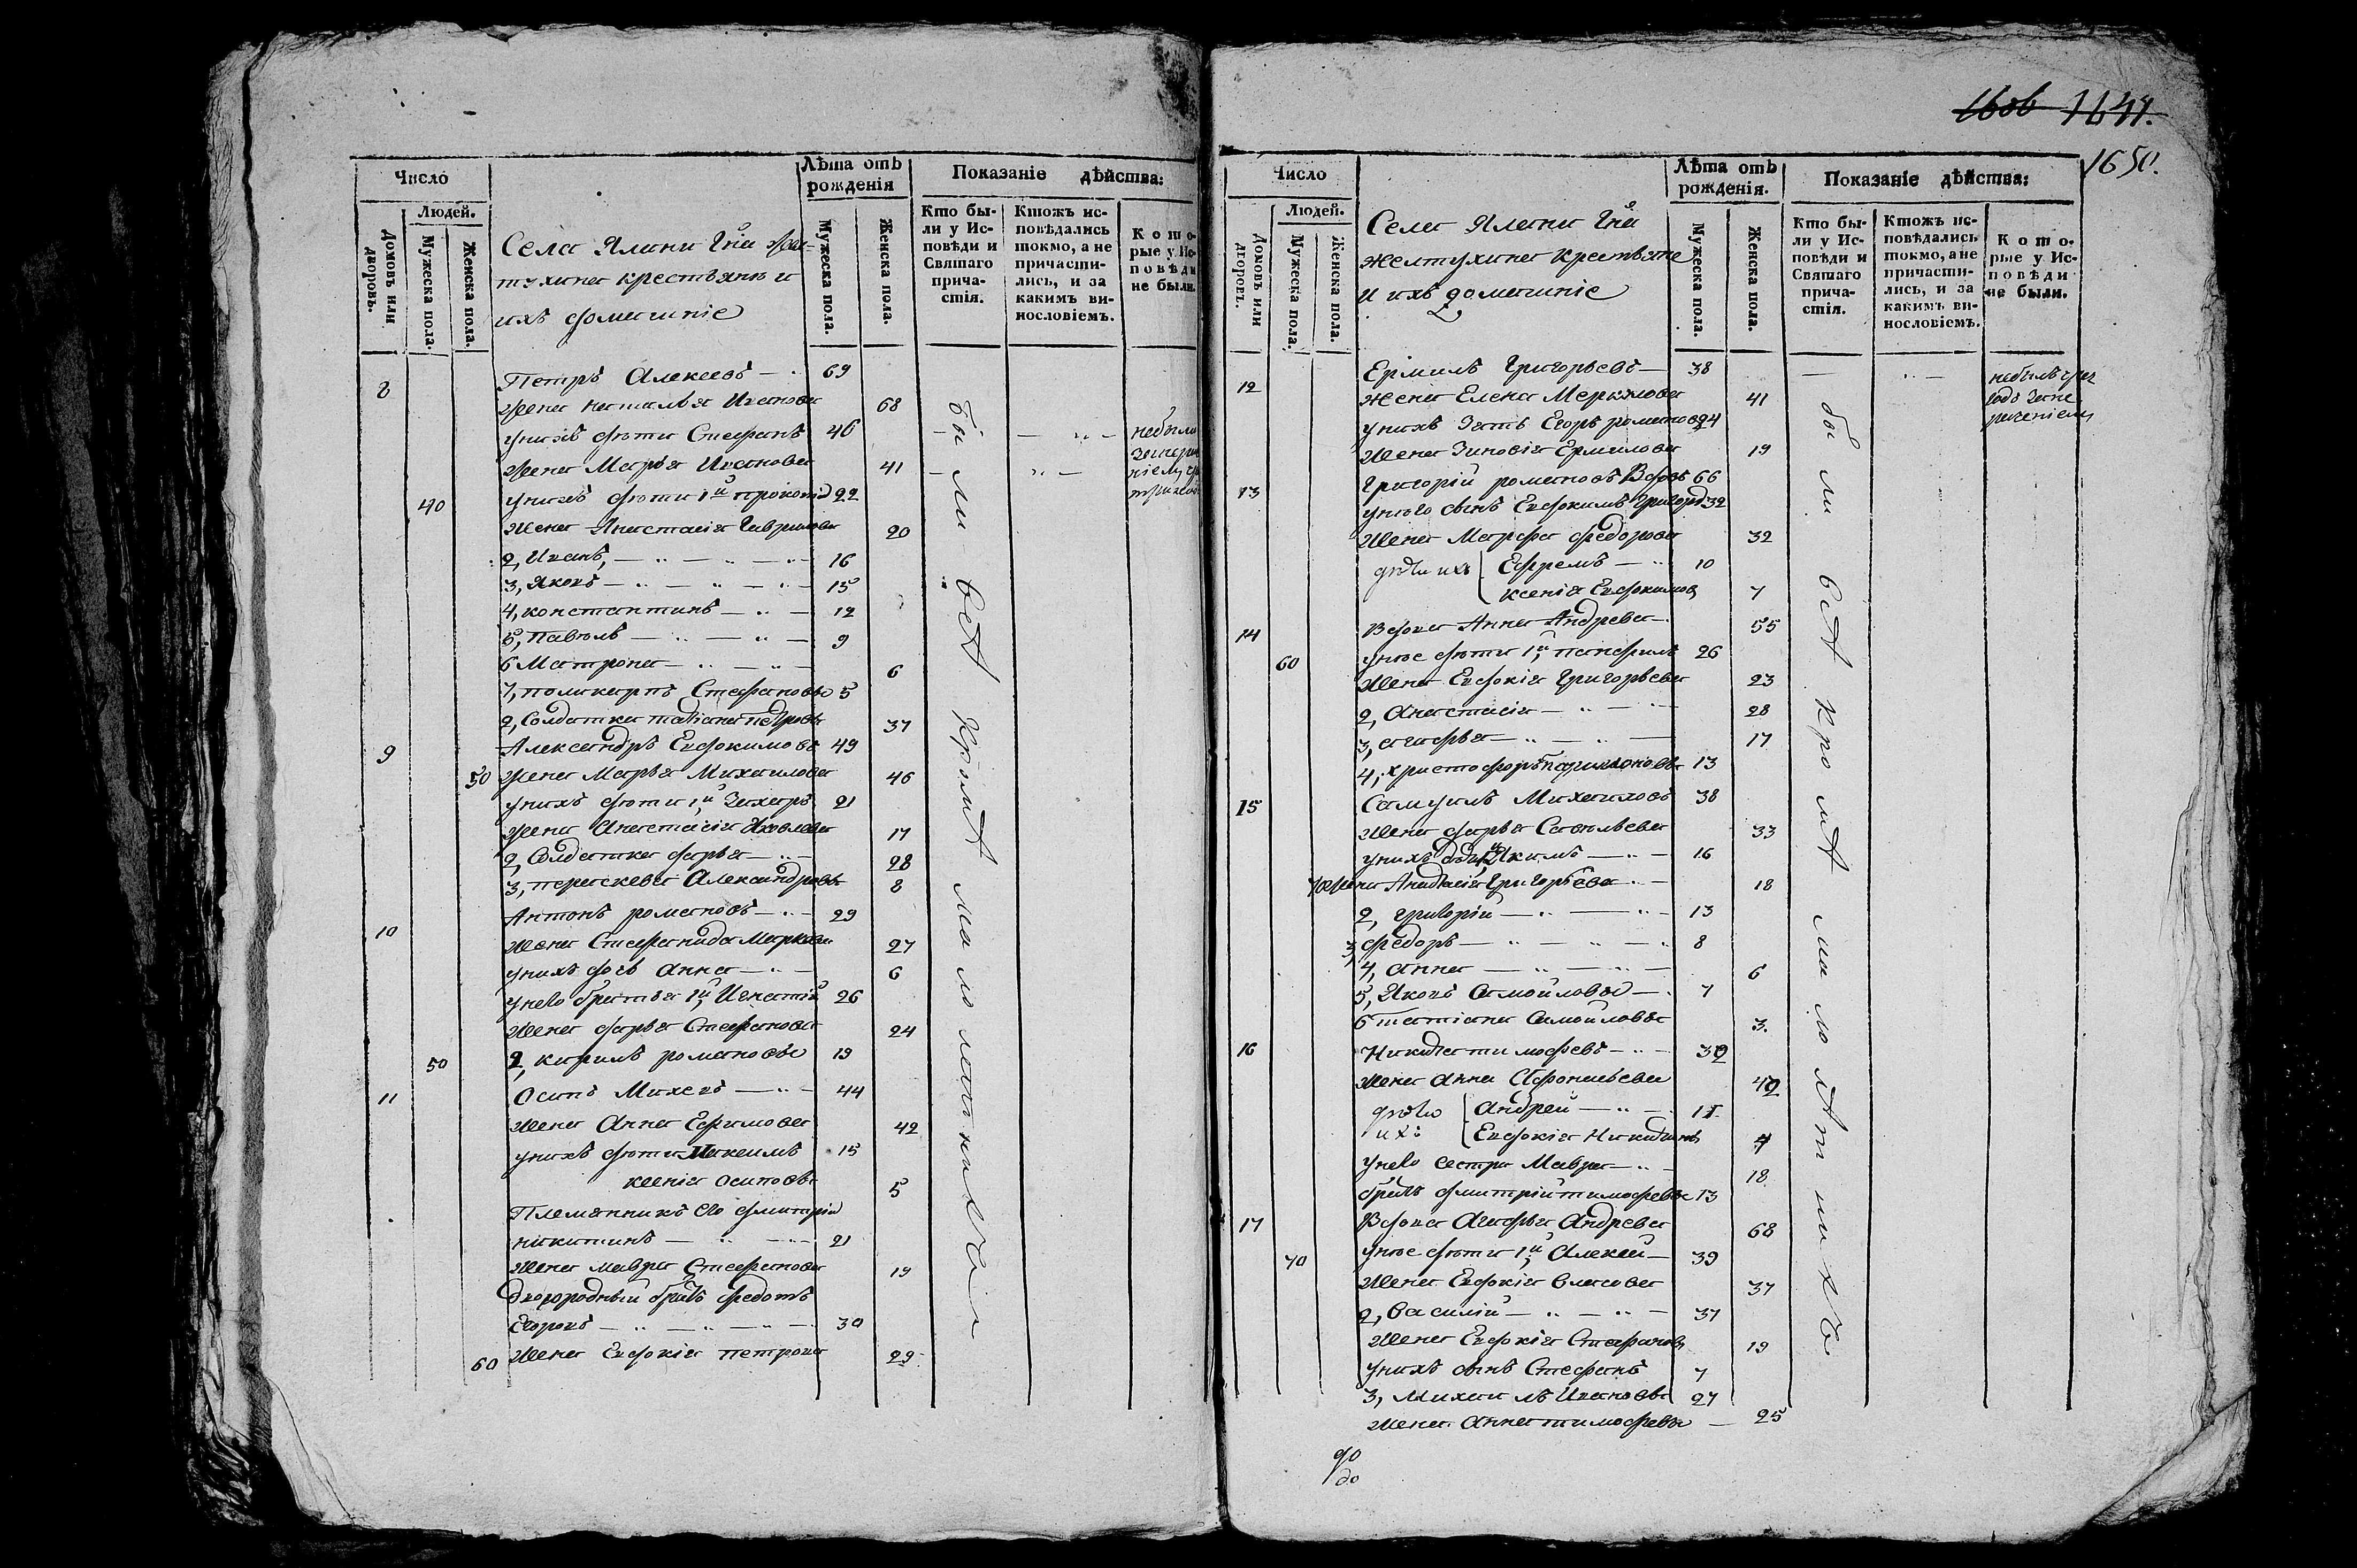 Число
Людей.
Домовъ или дворовъ.
Мужеска пола.
Женска пола.
Села Ялини Гна Жел-
тухина крестьяне и
ихъ домашніе
Лѣта отъ
рожденія
Мужеска пола.
Женска пола.
Показаніе дѣйства:
Кто бы-
ли у Ис-
повѣди и
Святаго
прича-
стія.
Ктожъ ис-
повѣдались
токмо, а не
причасти-
лись, и за
какимъ ви-
нословіемъ.
Кото-
рые у Ис-
повѣди
не были.
8 Петръ Алексеевъ 69
Жена Наталья Иванова 68
у нихъ дѣти Стефанъ 46 небыли
Жена Марья Иванова 41
40 у нихъ дѣти 1й Прокопій 22
Жена Анастасія Гаврилова 20
2, Иванъ, 16
3, Яковъ 15
4, Константинъ 12
5, Павелъ 9
6 Матрона 6
7, Поликарпъ Стефановы 5
2, Солдатка Татіана Петрова 37
9 Александръ Евдокимовъ 49
50 Жена Марья Михаилова 46
у нихъ дѣти 1й Захаръ 21
Жена Анастасія Яковлева 17
2, Солдатка Дарья 28
3, Параскева Александровы 8
10 Антонъ Романовъ 29
Жена Стефанида Маркова 27
у нихъ дочь Анна 6
у него братья 1й Игнатій 26
Жена Дарья Стефанова 24
50 2, Кирилъ Романовы 19
11 Осипъ Михеевъ 44
Жена Анна Ефимова 42
у нихъ дѣти Иакимъ 15
Ксенія Осиповы 5
Племянникъ его Дмитрій
Никитинъ 21
Жена Мавра Стефанова 19
Двоюродный братъ Федотъ
Егоровъ 30
60 Жена Евдокія Петрова 29
были всѣ кромѣ
1606 1647.
1650.
Число
Людей.
Домовъ или дворовъ.
Мужеска пола.
Женска пола.
Села Ялини Гна
Желтухина крестьяне
и ихъ домашніе
Лѣта отъ
рожденія.
Мужеска пола.
Женска пола.
Показаніе дѣйства:
Кто бы-
ли у Ис-
повѣди и
Святаго
прича-
стія.
Ктожъ ис-
повѣдались
токмо, а не
причасти-
лись, и за
какимъ ви-
нословіемъ.
Кото-
рые у Ис-
повѣди
не были.
12 Ермилъ Григорьевъ 38 небылъ
Жена Елена Меркулова 41
у нихъ зять Егоръ Романовъ 24
Жена Зиновія Ермилова 19
13 Григорій Романовъ Вдовъ 66
у него сынъ Евдокимъ Григорьевъ 32
Жена Марфа Федорова 32
дѣти ихъ Ефремъ 10
Ксенія Евдокимовы 7
14 Вдова Анна Андреева 55
60 у нее дѣти 1й, Панфилъ 26
Жена Евдокія Григорьева 23
2, Анастасія 28
3, Агафья 17
4, Христофоръ 13
15 Самуилъ Михаиловъ 38
Жена Дарья Савельева 33
у нихъ дѣти 1й Якимъ 16
Жена Анастасія Григорьева 18
2, Григорій 13
3, Федоръ 8
4, Анна 6
5, Яковъ Самойловы 7
6 Татіана Самойловы 3.
16 Никита Тимофеевъ 39
Жена Анна Афонасьева 42
дѣти Андрей 11
ихъ Евдокія Никитины 4
у него сестра Мавра 18
братъ Дмитрій Тимофеевы 13
17 Вдова Агафья Андреева 68
70 у нее дѣти 1й, Алексей 39
Жена Евдокія Власова 37
2, Василій 37
Жена Евдокія Стефанова 19
у нихъ сынъ Стефанъ 7
3, Михаилъ Ивановы 27
Жена Анна Тимофеева 25
были всѣ кромѣ малолѣтнихъ